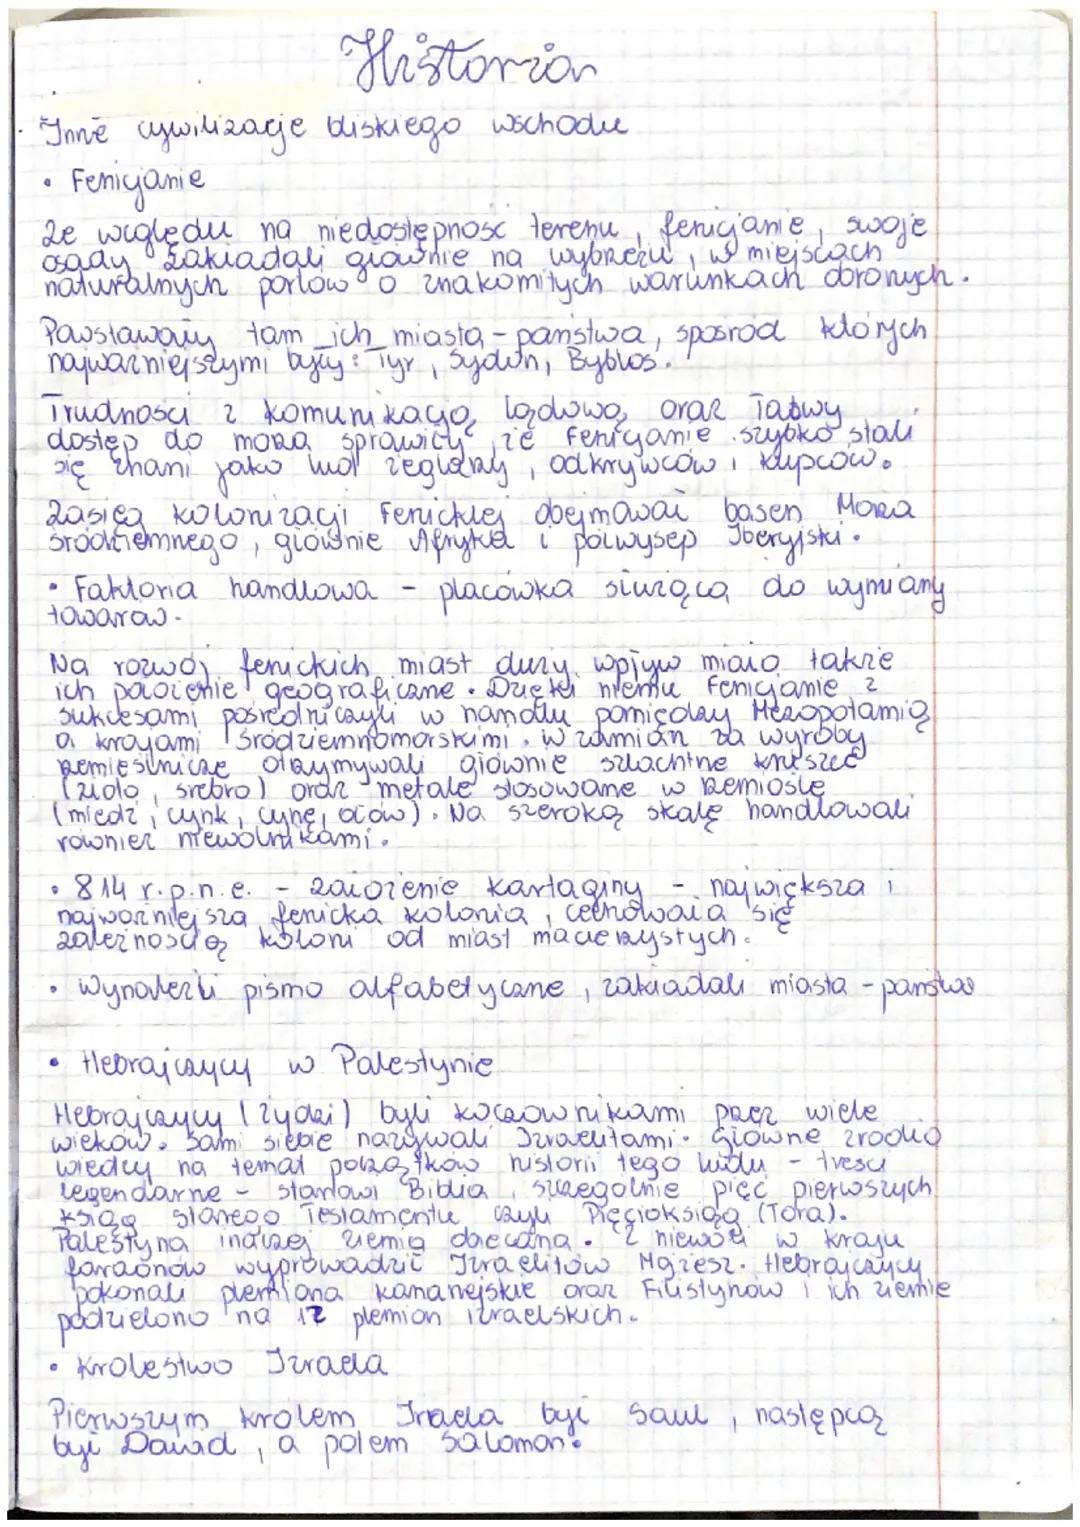 Historia
Inne cywilizacje bliskiego wschodu
• Fenicjanie
Ze względu na niedostępność terenu, fenicjanie, swoje
osady zakładali głównie na wybrzeżu, w miejscach
naturalnych portów o znakomitych warunkach obronnych.
Powstawały tam ich miasta-państwa, spośród których
najważniejszymi były: Tyr, Sydon, Byblos.
Trudności z komunikacją lądową oraz łatwy
dostęp do morza sprawiły, że Fenicjanie szybko stali
się znani jako lud żeglarzy, odkrywców i kupców.
Zasięg kolonizacji Fenickiej obejmował basen Morza
śródziemnego, głównie Afrykę i półwysep Iberyjski.
• Faktoria handlowa - placówka służąca do wymiany
towarów.
Na rozwój fenickich miast duży wpływ miało także
ich położenie geograficzne. Dzięki niemu Fenicjanie z
sukcesami pośredniczyli w handlu pomiędzy Mezopotamią
a krajami śródziemnomorskimi. W zamian za wyroby
rzemieślnicze otrzymywali głównie szlachetne kruszce
(złoto, srebro) oraz metale stosowane w rzemiośle
(miedź, cynk, cynę, ołów). Na szeroką skalę handlowali
również niewolnikami.
• 814 r.p.n.e. - założenie Kartaginy - największa i
najważniejsza fenicka kolonia, cechowała się
zależnością koloni od miast macierzystych.
• Wynaleźli pismo alfabetyczne, zakładali miasta-państwa
• Hebrajczycy w Palestynie
Hebrajczycy (Żydzi) byli koczownikami przez wiele
wieków. Sami siebie nazywali Izraelitami. Główne źródło
wiedzy na temat początków historii tego ludu - treści
legendarne - stanowi Biblia, szczególnie pięć pierwszych
ksiąg starego Testamentu czyli Pięcioksiąg (Tora).
Palestyna inaczej ziemia obiecana. Z niewoli w kraju
faraonów wyprowadził Izraelitów Mojżesz. Hebrajczycy
pokonali plemiona kananejskie oraz Filistynów i ich ziemie
podzielono na 12 plemion izraelskich.
• Królestwo Izraela
Pierwszym królem Izraela był Saul, następcą
był Dawid, a potem Salomon.